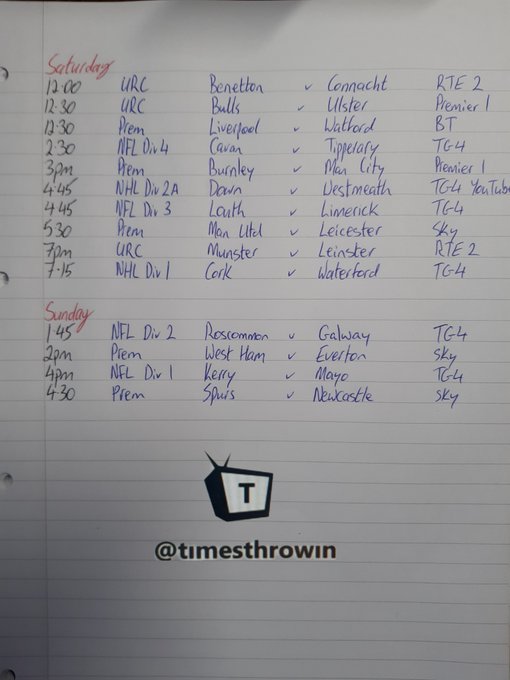 Saturday
12:00 URC Benetton v Connacht RTE 2
12.30 URC Bulls v Ulster Premier 1
12.30 Prem Liverpool v Watford BT
2.30 NFL Div 4 Cavan v Tipperary TG4
3pm Prem Burnley v Man City Premier 1
4.45 NHL Div 2A Down v Westmeath TG4 YouTube
4.45 NFL Div 3 Louth v Limerick TG4
5.30 Prem Man Utd v Leicester Sky
7pm URC Munster v Leinster RTE 2
7.15 NHL Div 1 Cork v Waterford TG4
Sunday
1.45 NFL Div 2 Roscommon v Galway TG4
2pm Prem West Ham v Everton Sky
4pm NFL Div 1 Kerry v Mayo TG4
4.30 Prem Spurs v Newcastle Sky
T
@timesthrowin